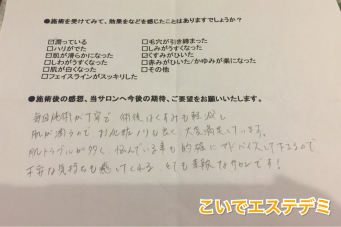 ●施術を受けてみて、効果をなどを感じたことはありますでしょうか?
☑潤っている □毛穴が引き締まった
□ハリがでた □しみがうすくなった
☑肌が滑らかになった ☑くすみがひいた
□しわがうすくなった □赤みがひいた/かゆみが楽になった
□肌が白くなった □その他
□フェイスラインがスッキリした
●施術後の感想、当サロンへ今後の期待、ご要望をお願いいたします。
毎回施術が丁寧で、術後はくすみも軽減し
肌が潤うのでお化粧ノリも良く大変満足しています。
肌トラブルが多く、悩んでいる事も的確にアドバイスして下さるので
気持ちも
サロンです!
こいでエステデミ